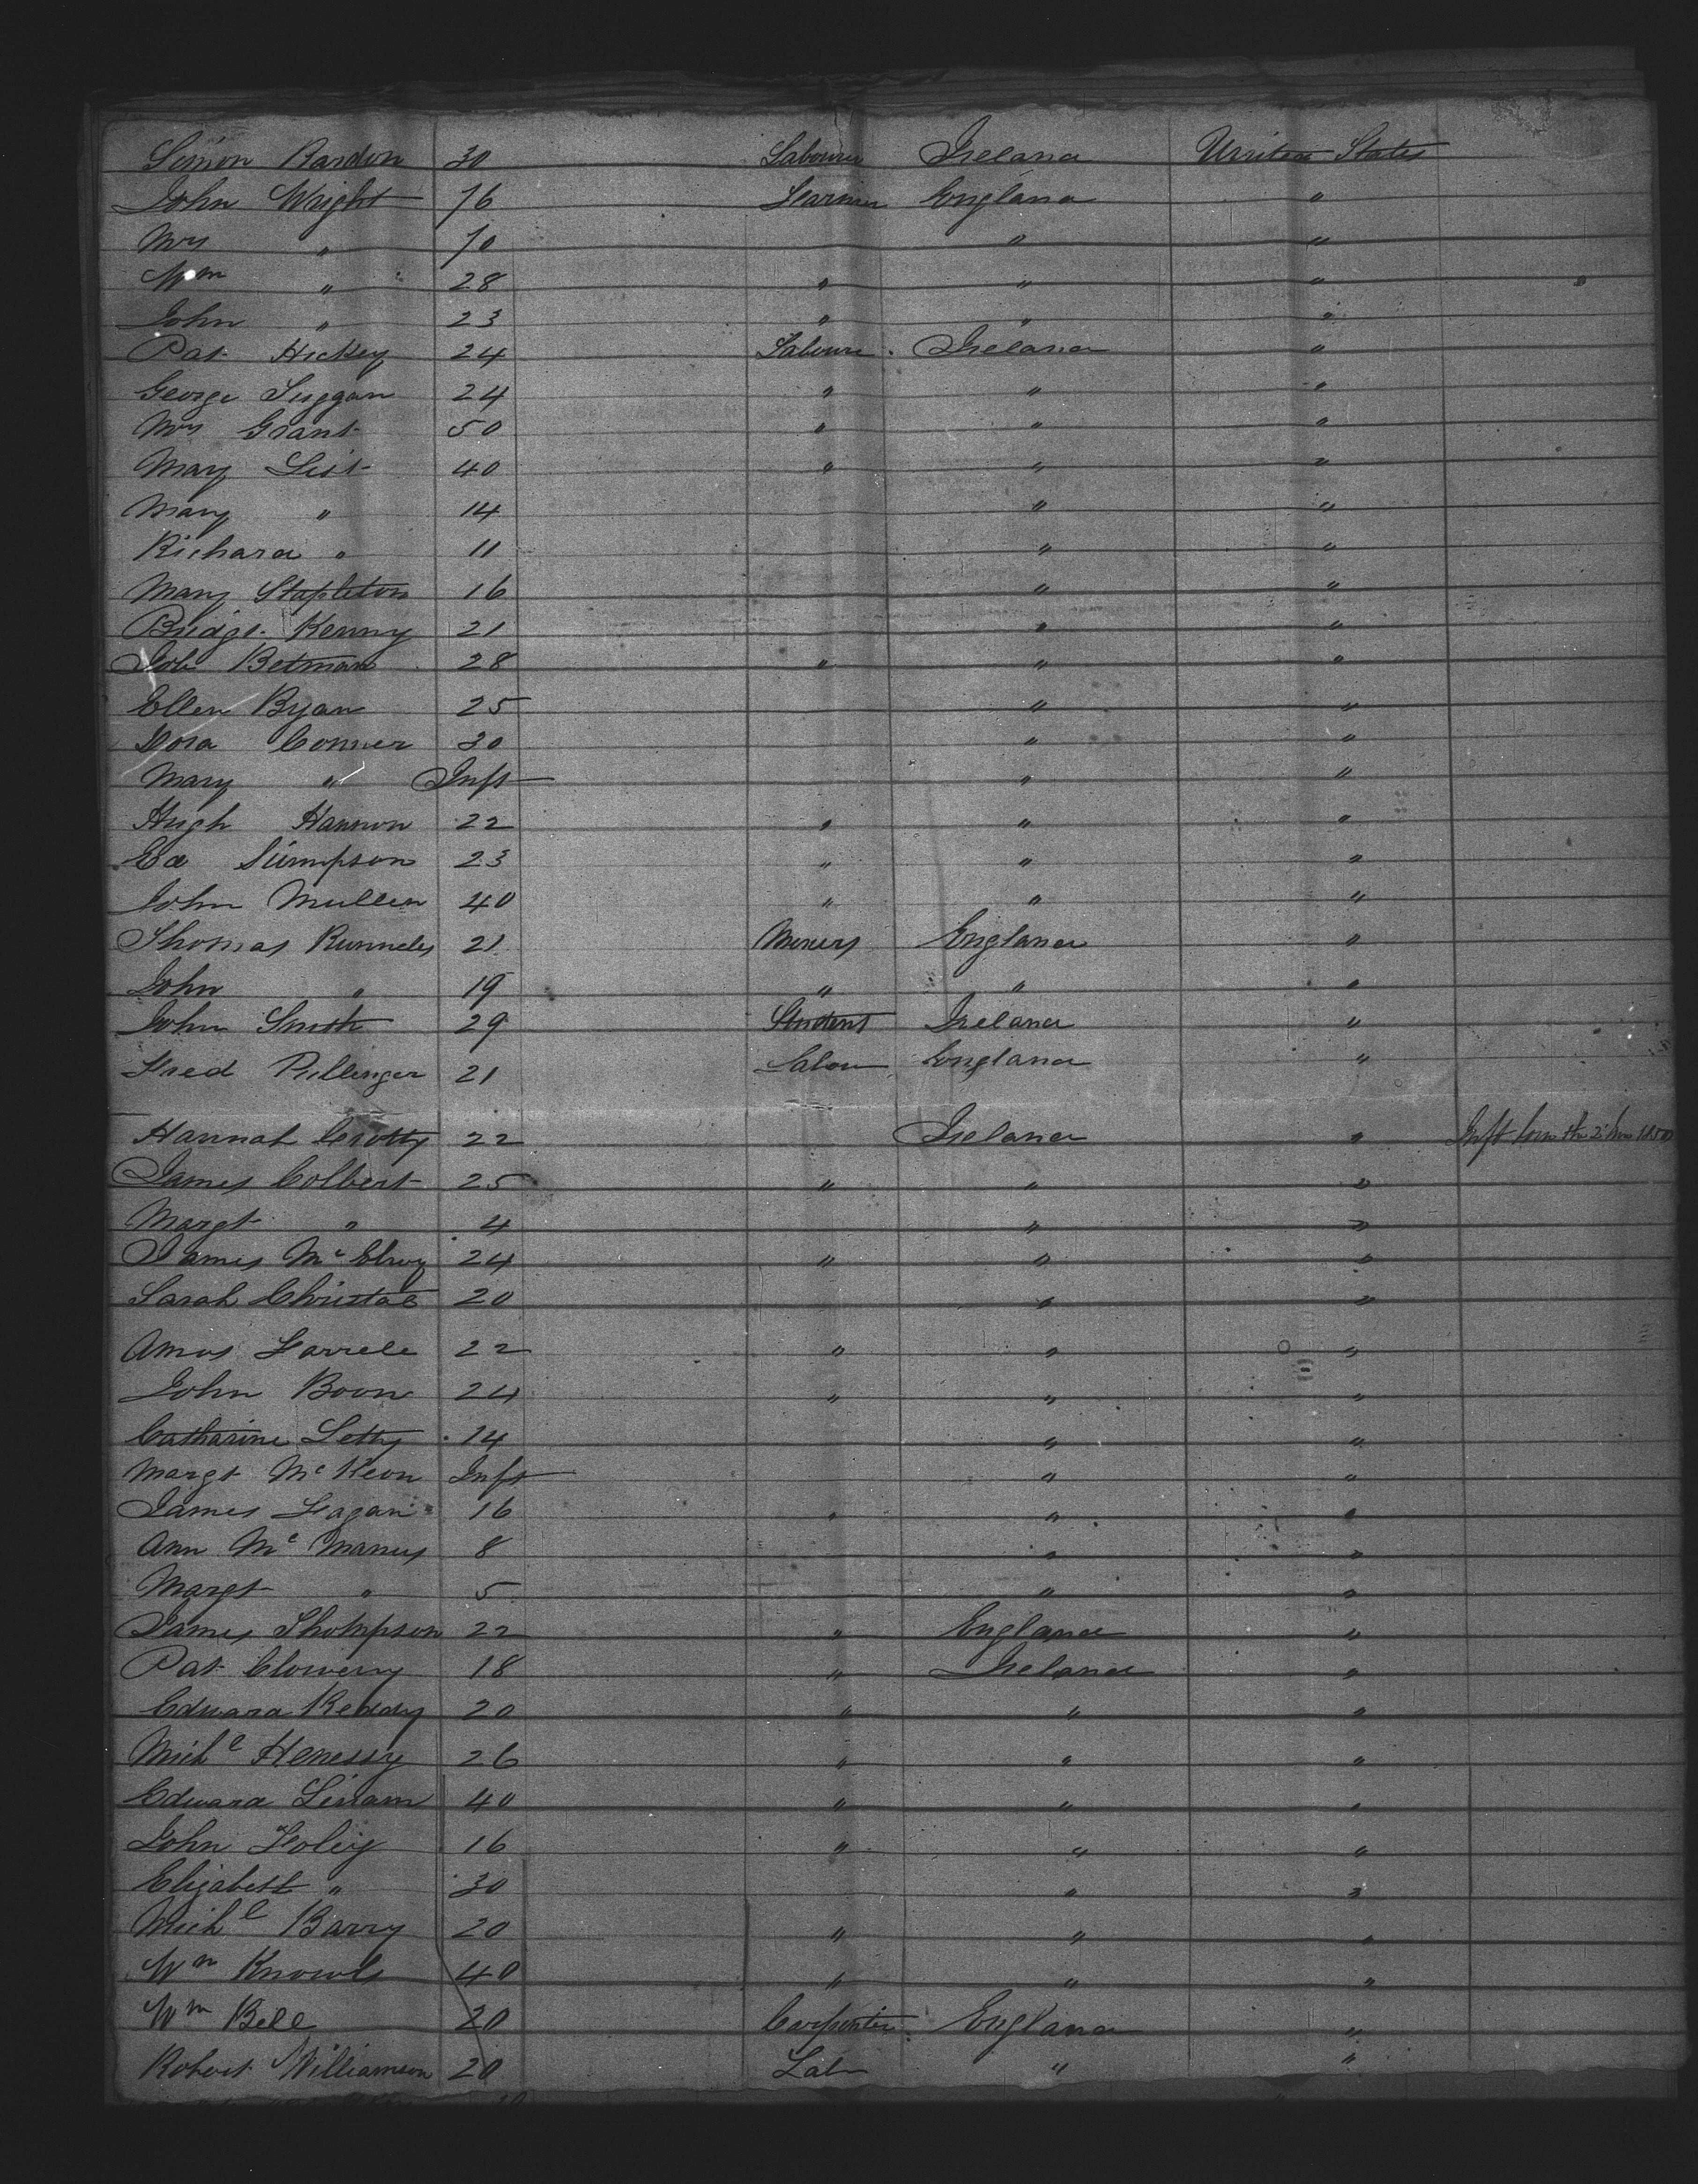 Simon Rardon 30 Labourer Ireland United States
John Wright 76 Farmer England "
Mrs " 70 " "
Wm " 28 " " "
John " 23 " " "
Pat Hickey 24 Labour Ireland "
George Suggan 24 " " "
Mrs Grant 50 " " "
Mary List 40 " " "
Mary " 14 " "
Richard " 11 " "
Mary Stapleton 16 " "
Bridgt Kenny 21 " "
Job Betman 28 " " "
Ellen Ryan 25 " "
Dora Conner 30 " "
Mary " Inft " "
Hugh Hannon 22 " " "
Ed Simpson 23 " " "
John Mullen 40 " " "
Thomas Runnels 21 Miners England "
John " 19 " " "
John Smith 29 Student Ireland "
Fred Pullenger 21 Labour England "
Hannah Crotty 22 Ireland " Inft born the
James Colbert 25 " " "
Margt " 4 " "
James McElroy 24 " " "
Sarah Christal 20 " "
Amos Farrell 22 " " "
John Boon 24 " " "
Catharine Letty 14 " "
Margt McKeon Inft " "
James Fagan 16 " " "
Ann McManus 8 " "
Margt " 5 " "
James Thompson 22 " England "
Pat Clowery 18 " Ireland "
Edward Reddy 20 " " "
Michl Henessy 26 " " "
Edward Linam 40 " " "
John Foley 16 " " "
Elizabeth " 30 " "
Michl Barry 20 " " "
Wm Knowls 40 " " "
Wm Bell 20 Carpenter England "
Robert Williamson 20 Lab " "